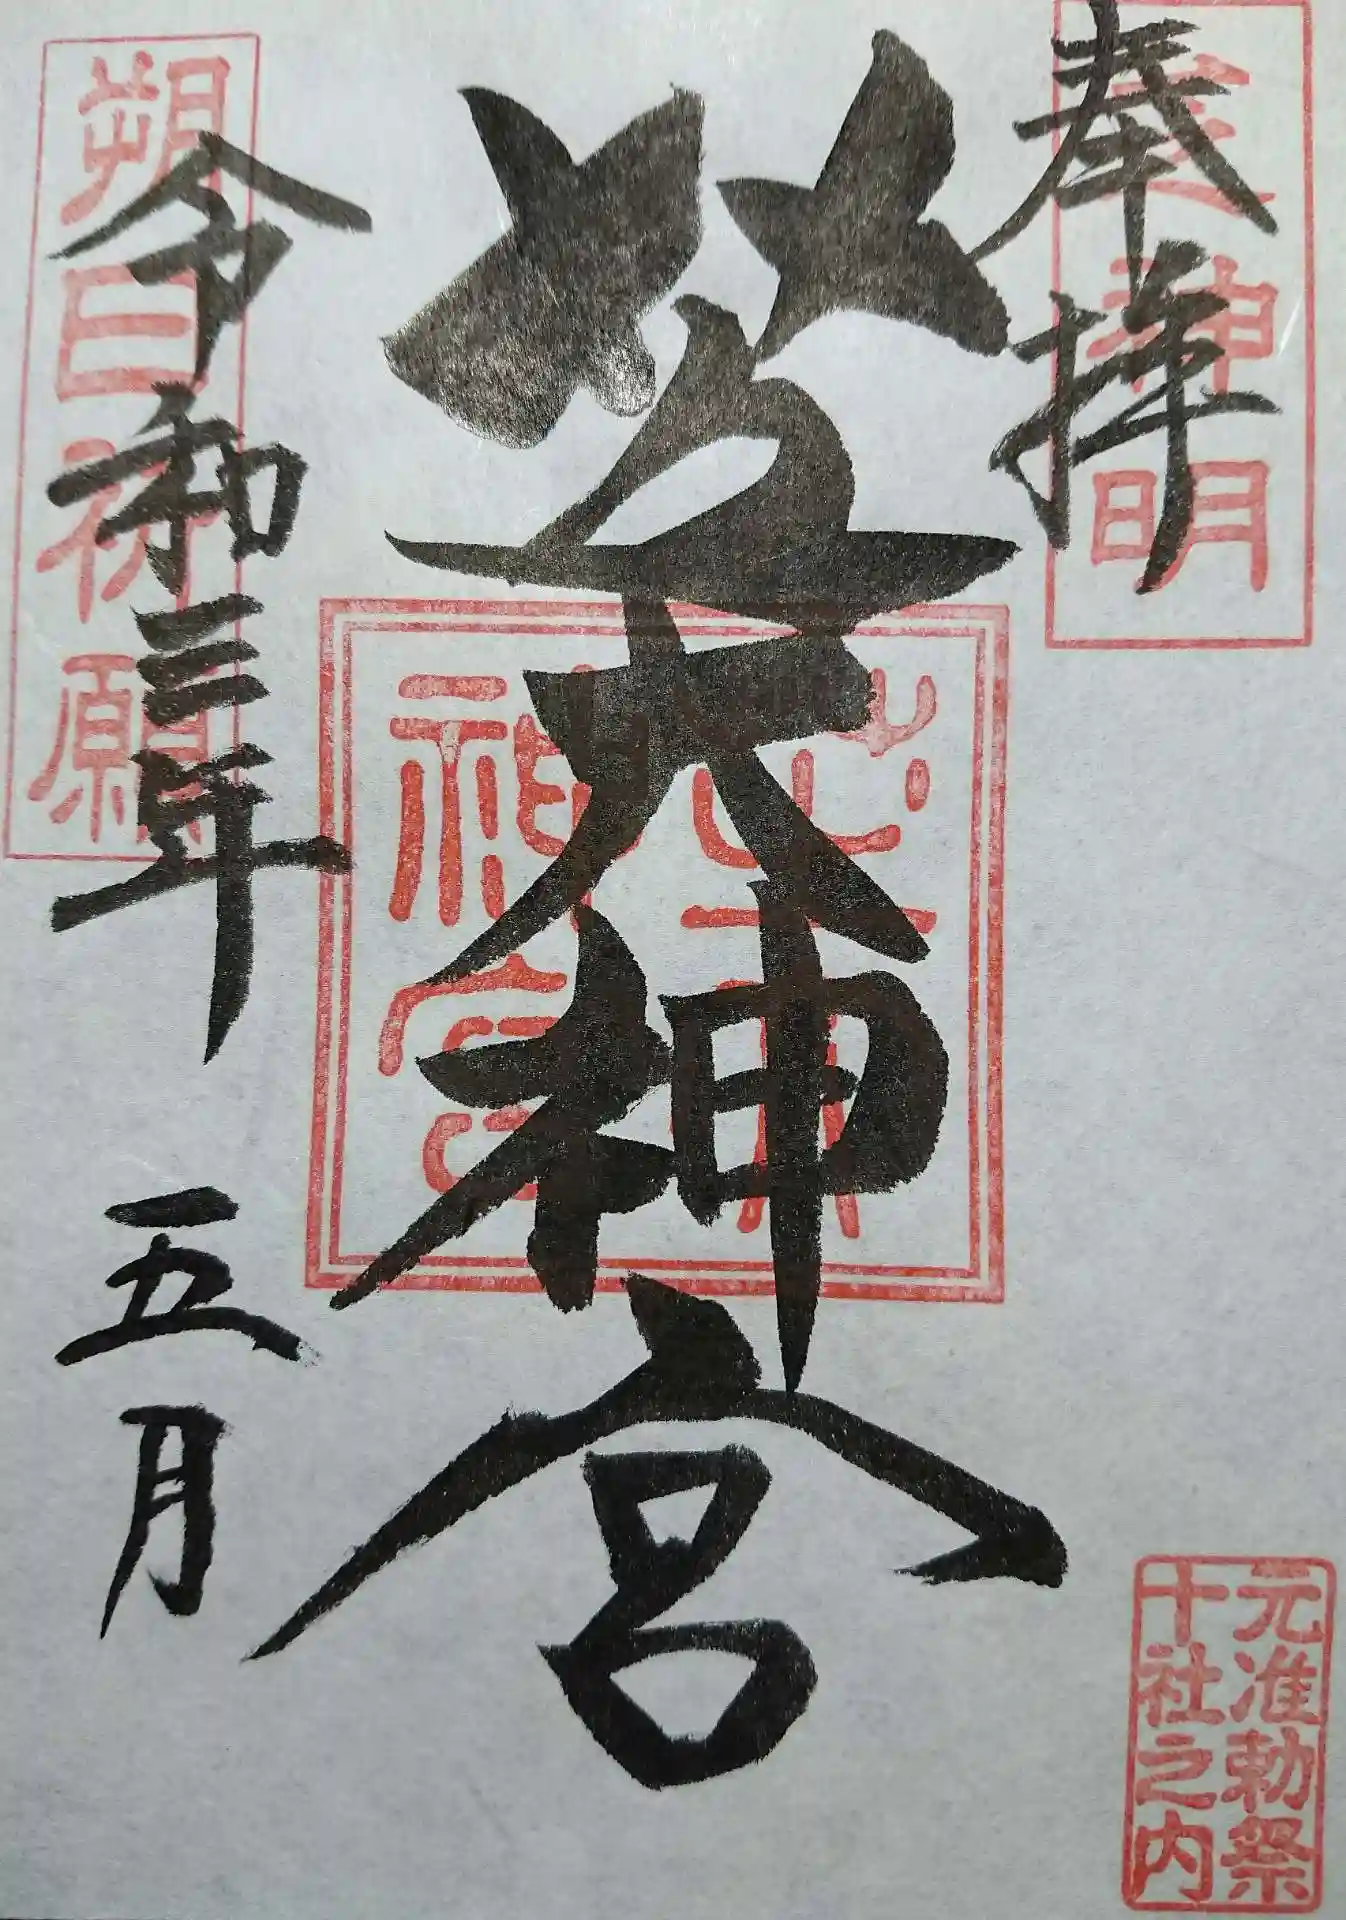 奉拝
芝神明
芝大神宮
芝大神宮
元准勅祭
十社之内
朔日祈願
令和三年 五月